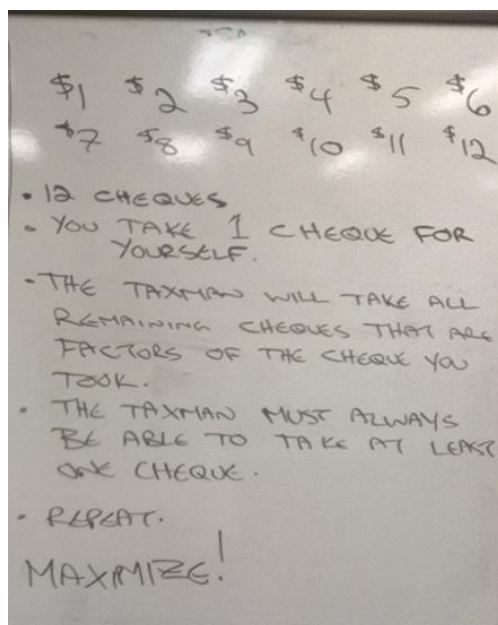 $1 $2 $3 $4 $5 $6
$7 $8 $9 $10 $11 $12
• 12 CHEQUES
• YOU TAKE 1 CHEQUE FOR
YOURSELF.
• THE TAXMAN WILL TAKE ALL
REMAINING CHEQUES THAT ARE
FACTORS OF THE CHEQUE YOU
TOOK.
• THE TAXMAN MUST ALWAYS
BE ABLE TO TAKE AT LEAST
ONE CHEQUE.
• REPEAT.
MAXIMIZE!